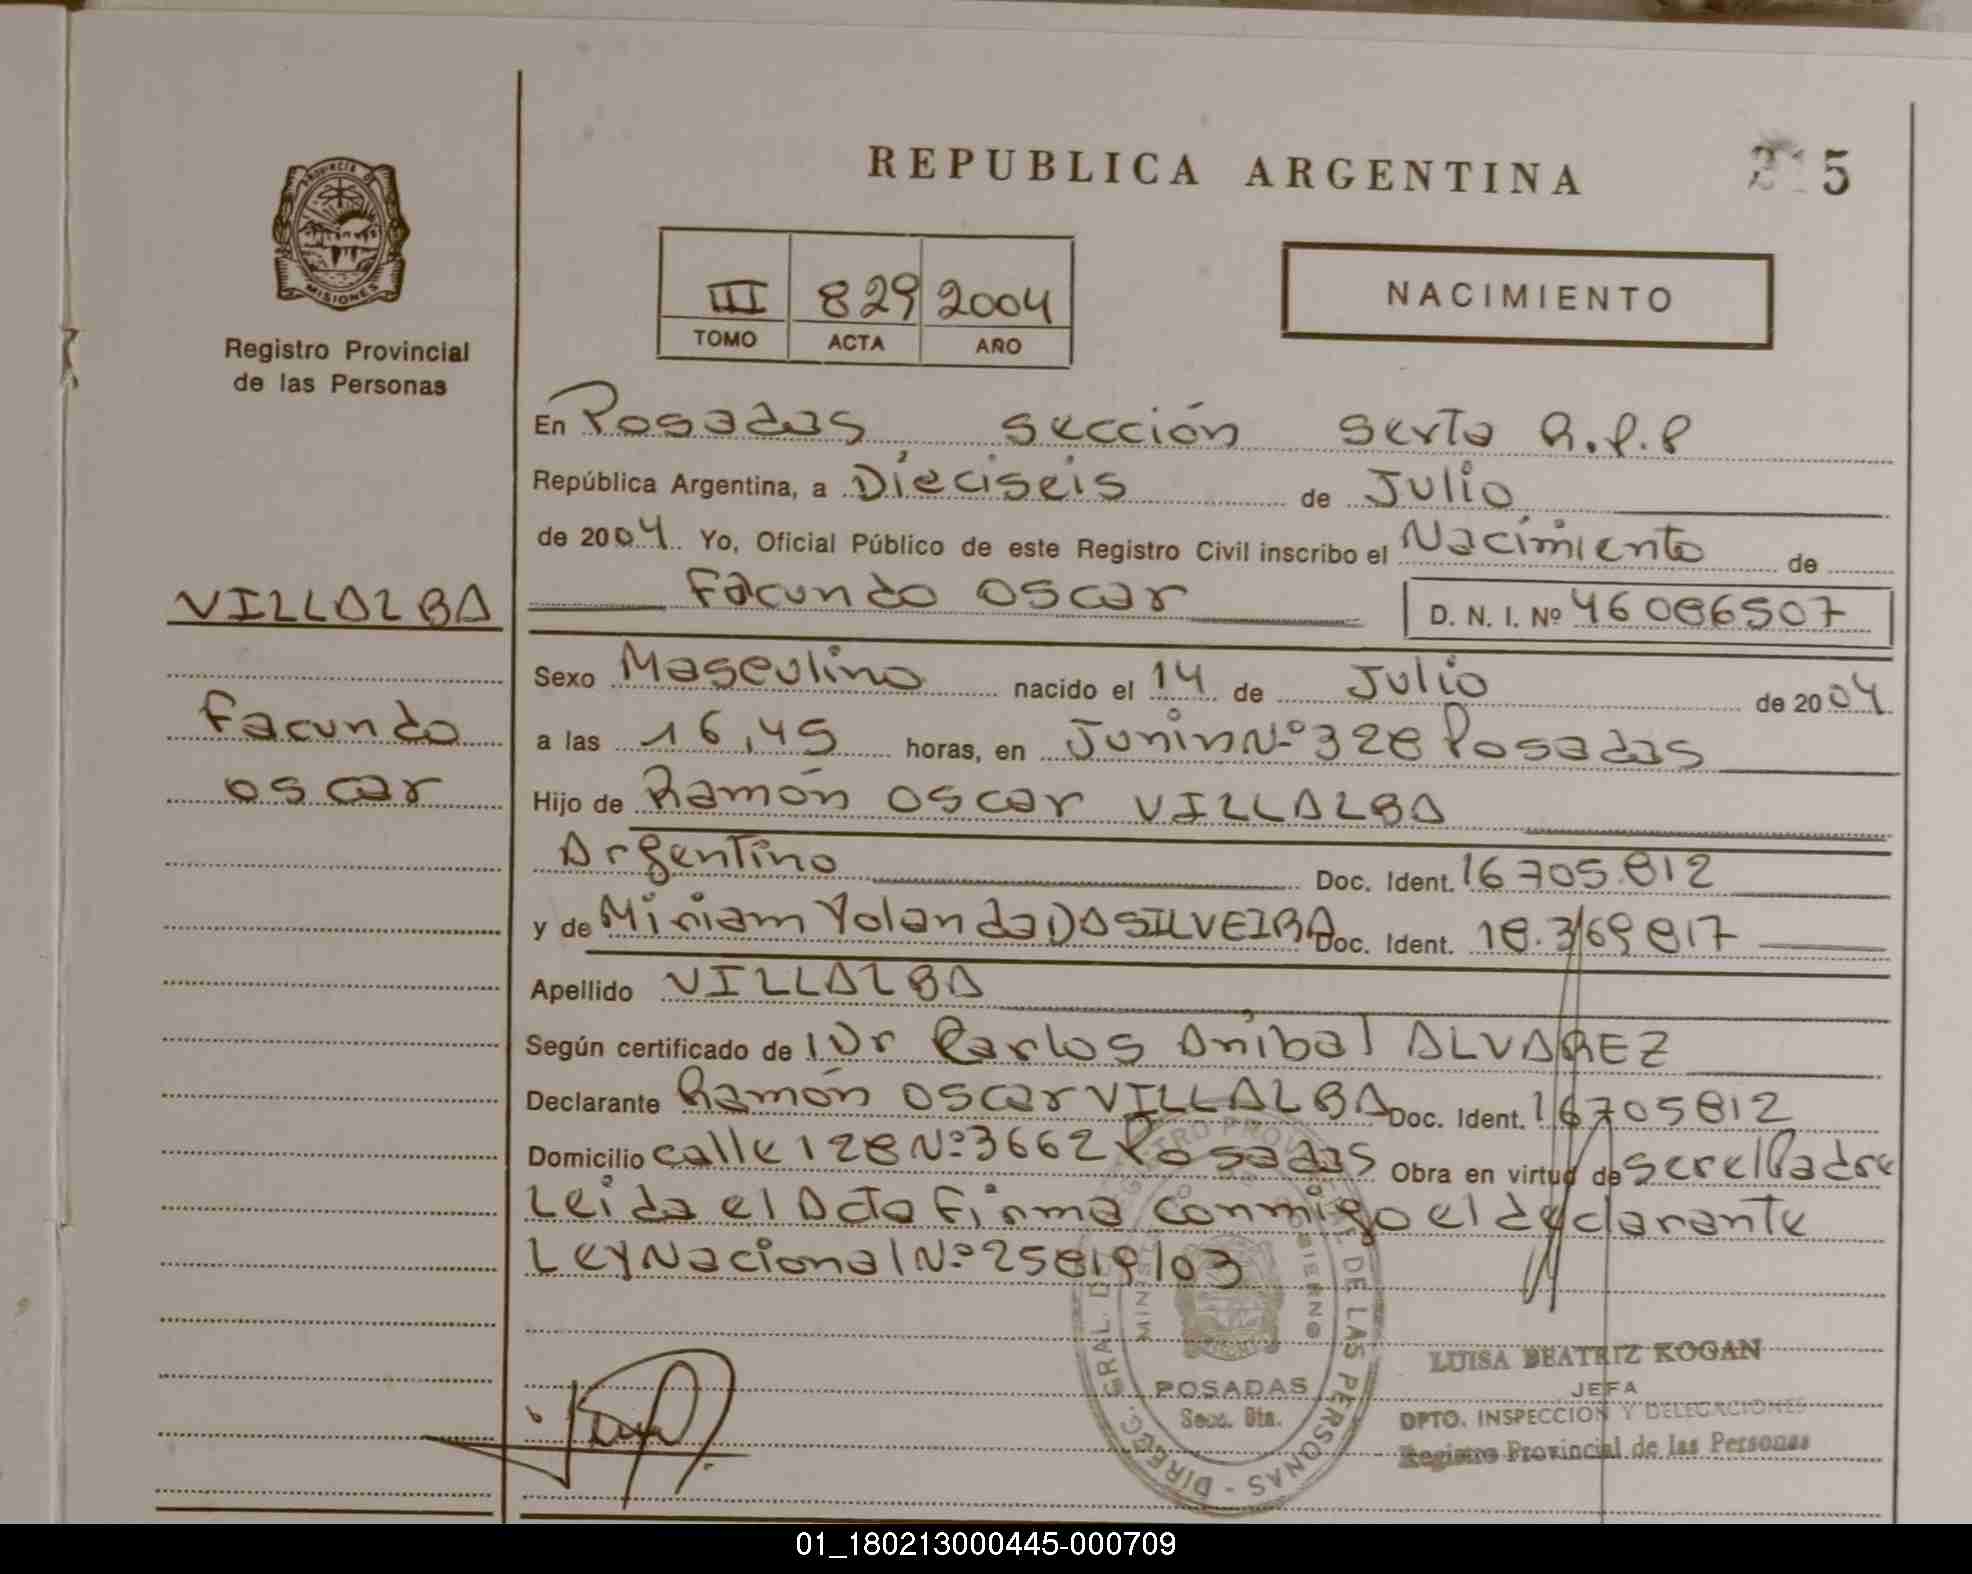 REPUBLICA ARGENTINA
5
PROVINCIA D
MISIONES
Registro Provincial
de las Personas
III 829 2004
TOMO ACTA AÑO
NACIMIENTO
En Posadas sección sexta R.P.P
República Argentina, a Dieciseis de Julio
de 2004 Yo, Oficial Público de este Registro Civil inscribo el Nacimiento de
Facundo Oscar D. N. I. Nº 46086507
VILLALBA
Facundo
Oscar
Sexo Masculino nacido el 14 de Julio de 2004
a las 16,45 horas, en Junin Nº 328 Posadas
Hijo de Ramón Oscar VILLALBA
Argentino Doc. Ident. 16705.812
y de Miriam Yolanda DASILVEIRA Doc. Ident. 18.369817
Apellido VILLALBA
Según certificado de l Dr Carlos Anibal ALVAREZ
Declarante Ramón Oscar VILLALBA Doc. Ident. 16705812
Domicilio calle 128 Nº 3662 Posadas Obra en virtud de ser el Padre
Leida el Acta Firma conmigo el declarante
Ley Nacional Nº 25819/03
DIRECC. GRAL. DE REGISTRO PROVINCIAL DE LAS PERSONAS
POSADAS
Secc. 6ta.
LUISA BEATRIZ KOGAN
JEFA
DPTO. INSPECCION Y DELEGACIONES
Registro Provincial de las Personas
01_180213000445-000709